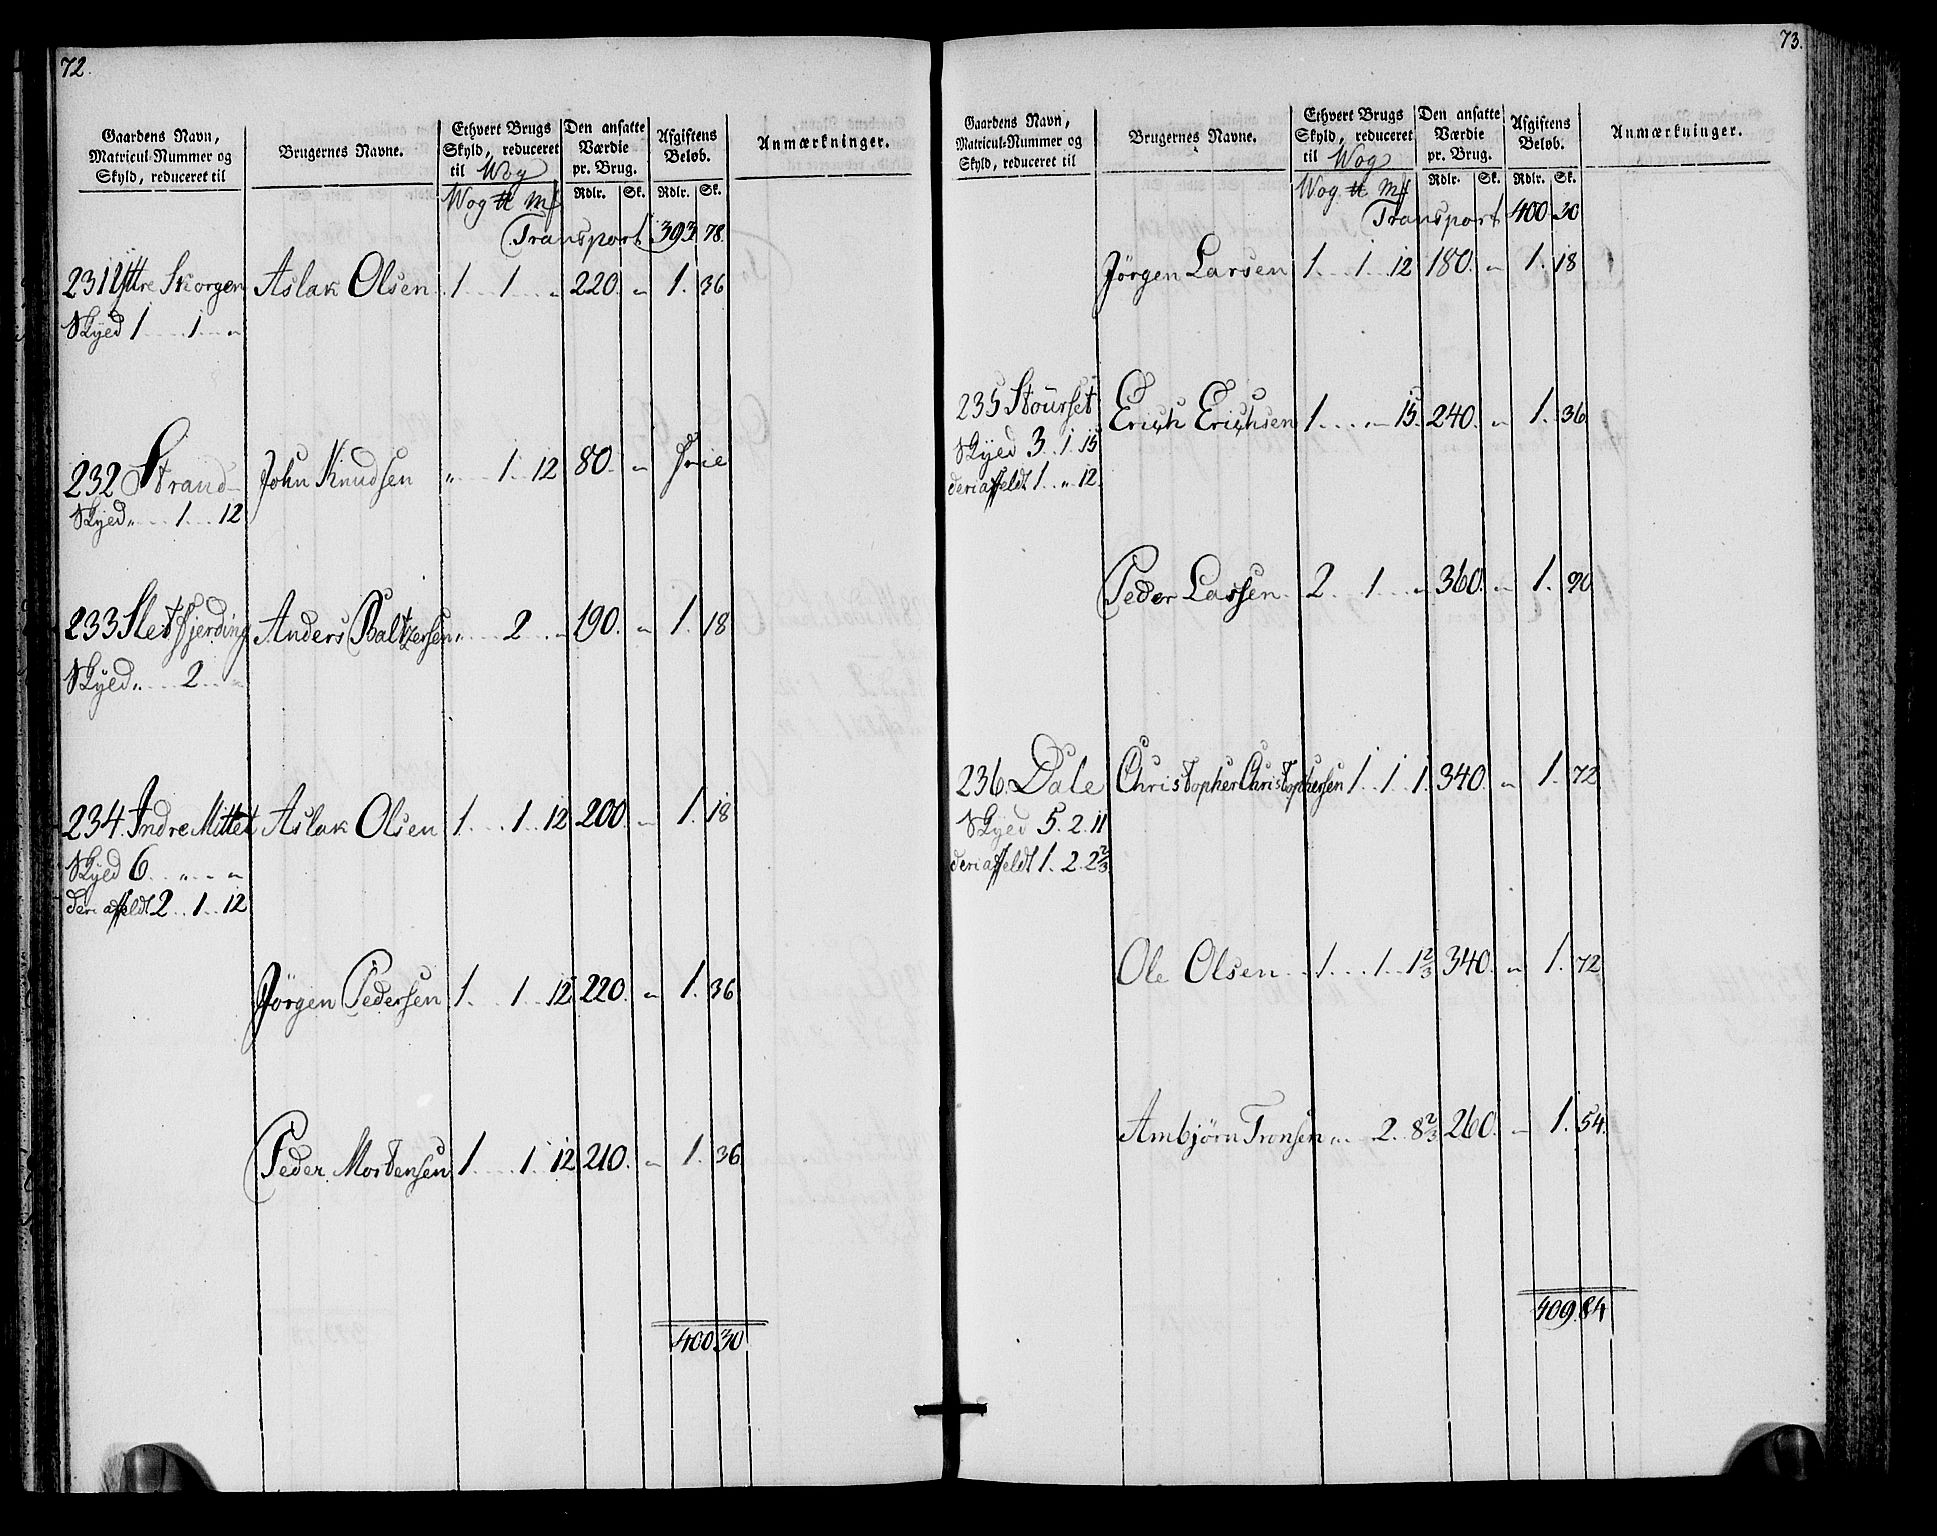 72.
Gaardens Navn, Matricul-Nummer og Skyld, reduceret til
Brugernes Navne.
Ethvert Brugs Skyld, reduceret til Wog
Den ansatte Værdie pr. Brug.
Afgiftens Beløb.
Anmærkninger.
Wog ℔ Mk Rdlr. Sk. Rdlr. Sk.
Transport 393 78.
231 Yttre Skorgen Aslak Olsen 1 1 " 220. " 1. 36
Skyed 1 1 "
232 Strand John Knudsen " 1 12 80. " frie
Skyed " 1 12
233 Sletfjerding Anders Baltzersen " 2 " 190. " 1. 18
Skyed " 2 "
234. Indre Mittet Aslak Olsen 1 1 12 200. " 1. 18
Skyed 6 " "
deri affeldt 2 1 12
Jörgen Pedersen 1 1 12 220. " 1. 36
Peder Mortensen 1 1 12 210. " 1. 36
400 30
73.
Gaardens Navn, Matricul-Nummer og Skyld, reduceret til
Brugernes Navne.
Ethvert Brugs Skyld, reduceret til Wog
Den ansatte Værdie pr. Brug.
Afgiftens Beløb.
Anmærkninger.
Wog ℔ Mk Rdlr. Sk. Rdlr. Sk.
Transport 400 30
Jörgen Larsen 1 1 12 180. " 1. 18
235 Stourset Erich Erichsen 1 " 15. 240. " 1. 36
Skyed 3. 1. 15
deri affeldt 1. " 12.
Peder Lassen 2 1 " 360. " 1. 90
236. Dale Christopher Christophersen 1 1 1. 340. " 1. 72
Skyed 5. 2. 11
deri affeldt 1. 2. 2 2/3
Ole Olsen 1 1 1 2/3 340. " 1. 72
Ambjörn Tronsen " 2 8 2/3 260. " 1. 54.
409. 84